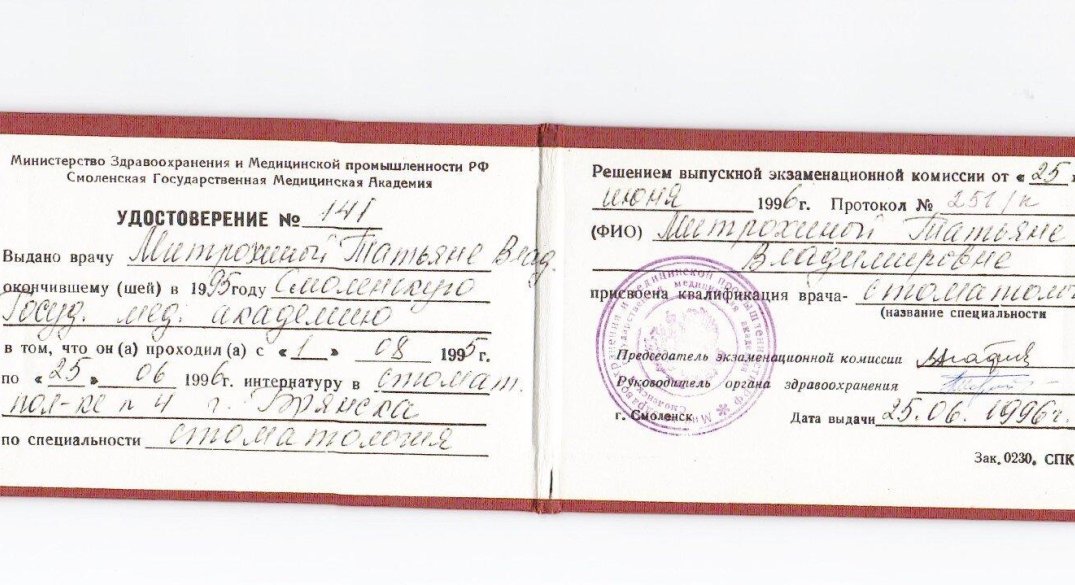 Министерство Здравоохранения и Медицинской промышленности РФ
Смоленская Государственная Медицинская Академия
УДОСТОВЕРЕНИЕ № 141
Выдано врачу Митрохиной Татьяне Влад.
окончившему (шей) в 1995 году Смоленскую
Госуд. мед. академию
в том, что он (а) проходил (а) с «1» 08 1995 г.
по «25» 06 1996 г. интернатуру в стомат.
пол-ке п 4 г. Брянска
по специальности стоматология
Решением выпускной экзаменационной комиссии от «25
июня 1996 г. Протокол № 251/к
(ФИО) Митрохиной Татьяне
Владимировне
присвоена квалификация врача- стоматолог
(название специальности
Председатель экзаменационной комиссии
Руководитель органа здравоохранения
г. Смоленск Дата выдачи 25.06.1996 г.
Зак. 0230. СПК